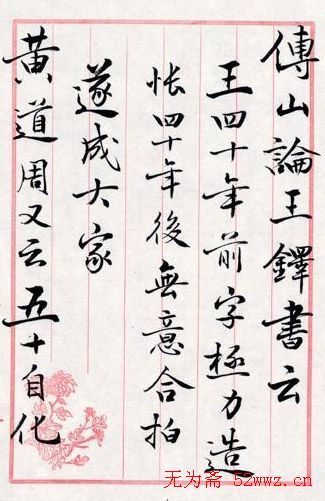 傅山論王鐸書云
王四十年前字極力造
悵四十年後無意合拍
遂成大家
黄道周又云五十自化
无为斋 52wwz.cn